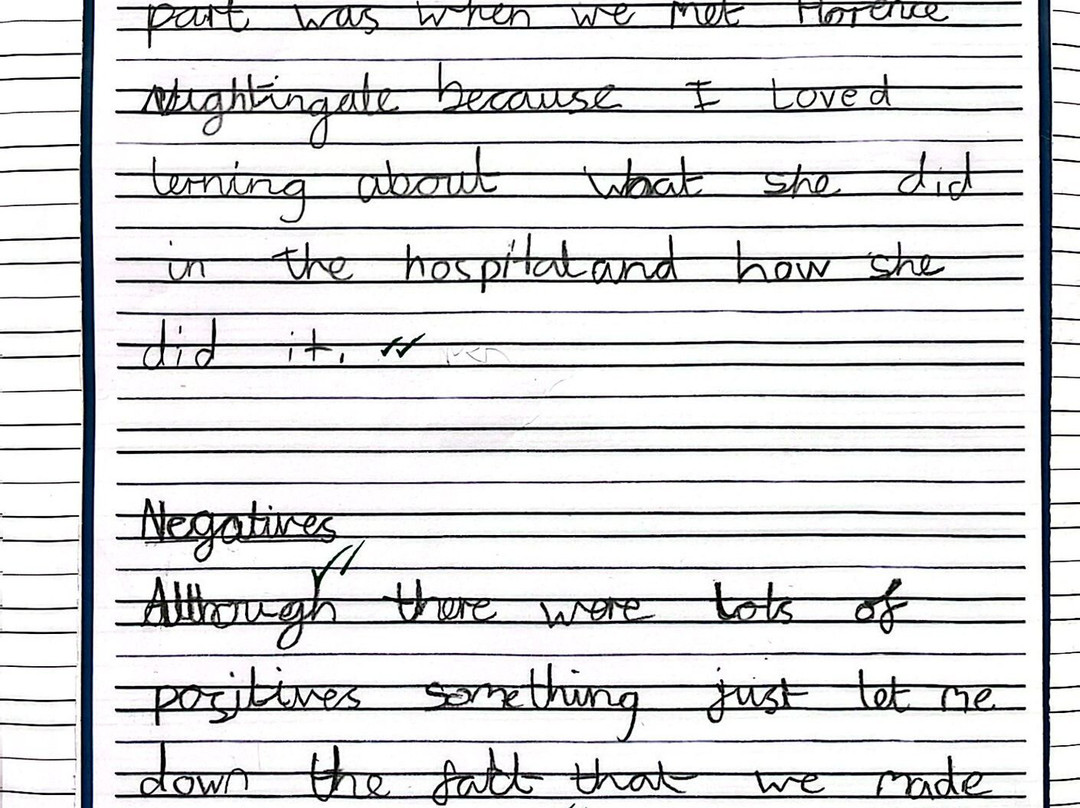 part was when we met Florence
Nightingale because I Loved
lerning about what she did
in the hospital and how she
did it.
Negatives
Although there were lots of
positives something just let me
down the fatt that we made